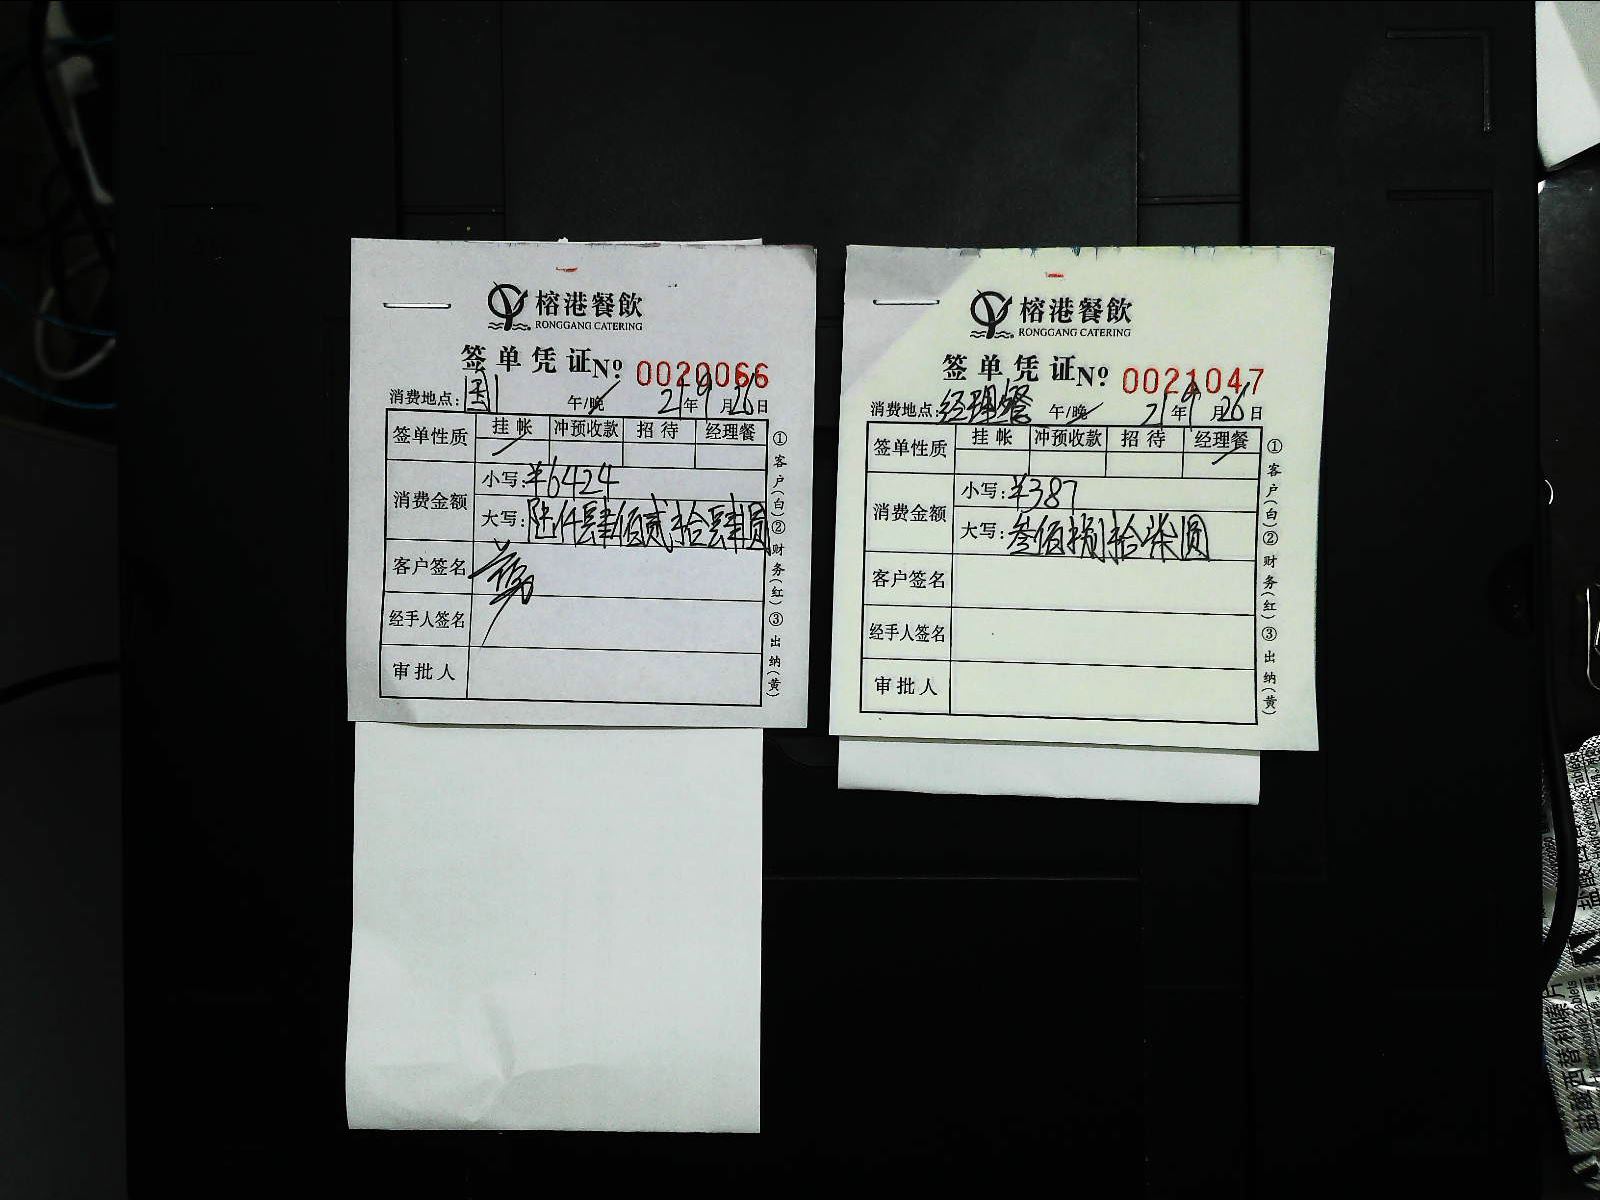 榕港餐飲
RONGGANG CATERING
签单凭证 Nº 0020066
消费地点: 国1 午/晚 21年9月26日
签单性质 挂帐 冲预收款 招待 经理餐
消费金额 小写:¥6424
大写:陆仟肆佰贰拾肆圆
客户签名
经手人签名
审批人
①客户(白)②财务(红)③出纳(黄)
榕港餐飲
RONGGANG CATERING
签单凭证 Nº 0021047
消费地点:经理餐 午/晚 21年9月26日
签单性质 挂帐 冲预收款 招待 经理餐
消费金额 小写:¥387
大写:叁佰捌拾柒圆
客户签名
经手人签名
审批人
①客户(白)②财务(红)③出纳(黄)
盐酸西替利嗪片